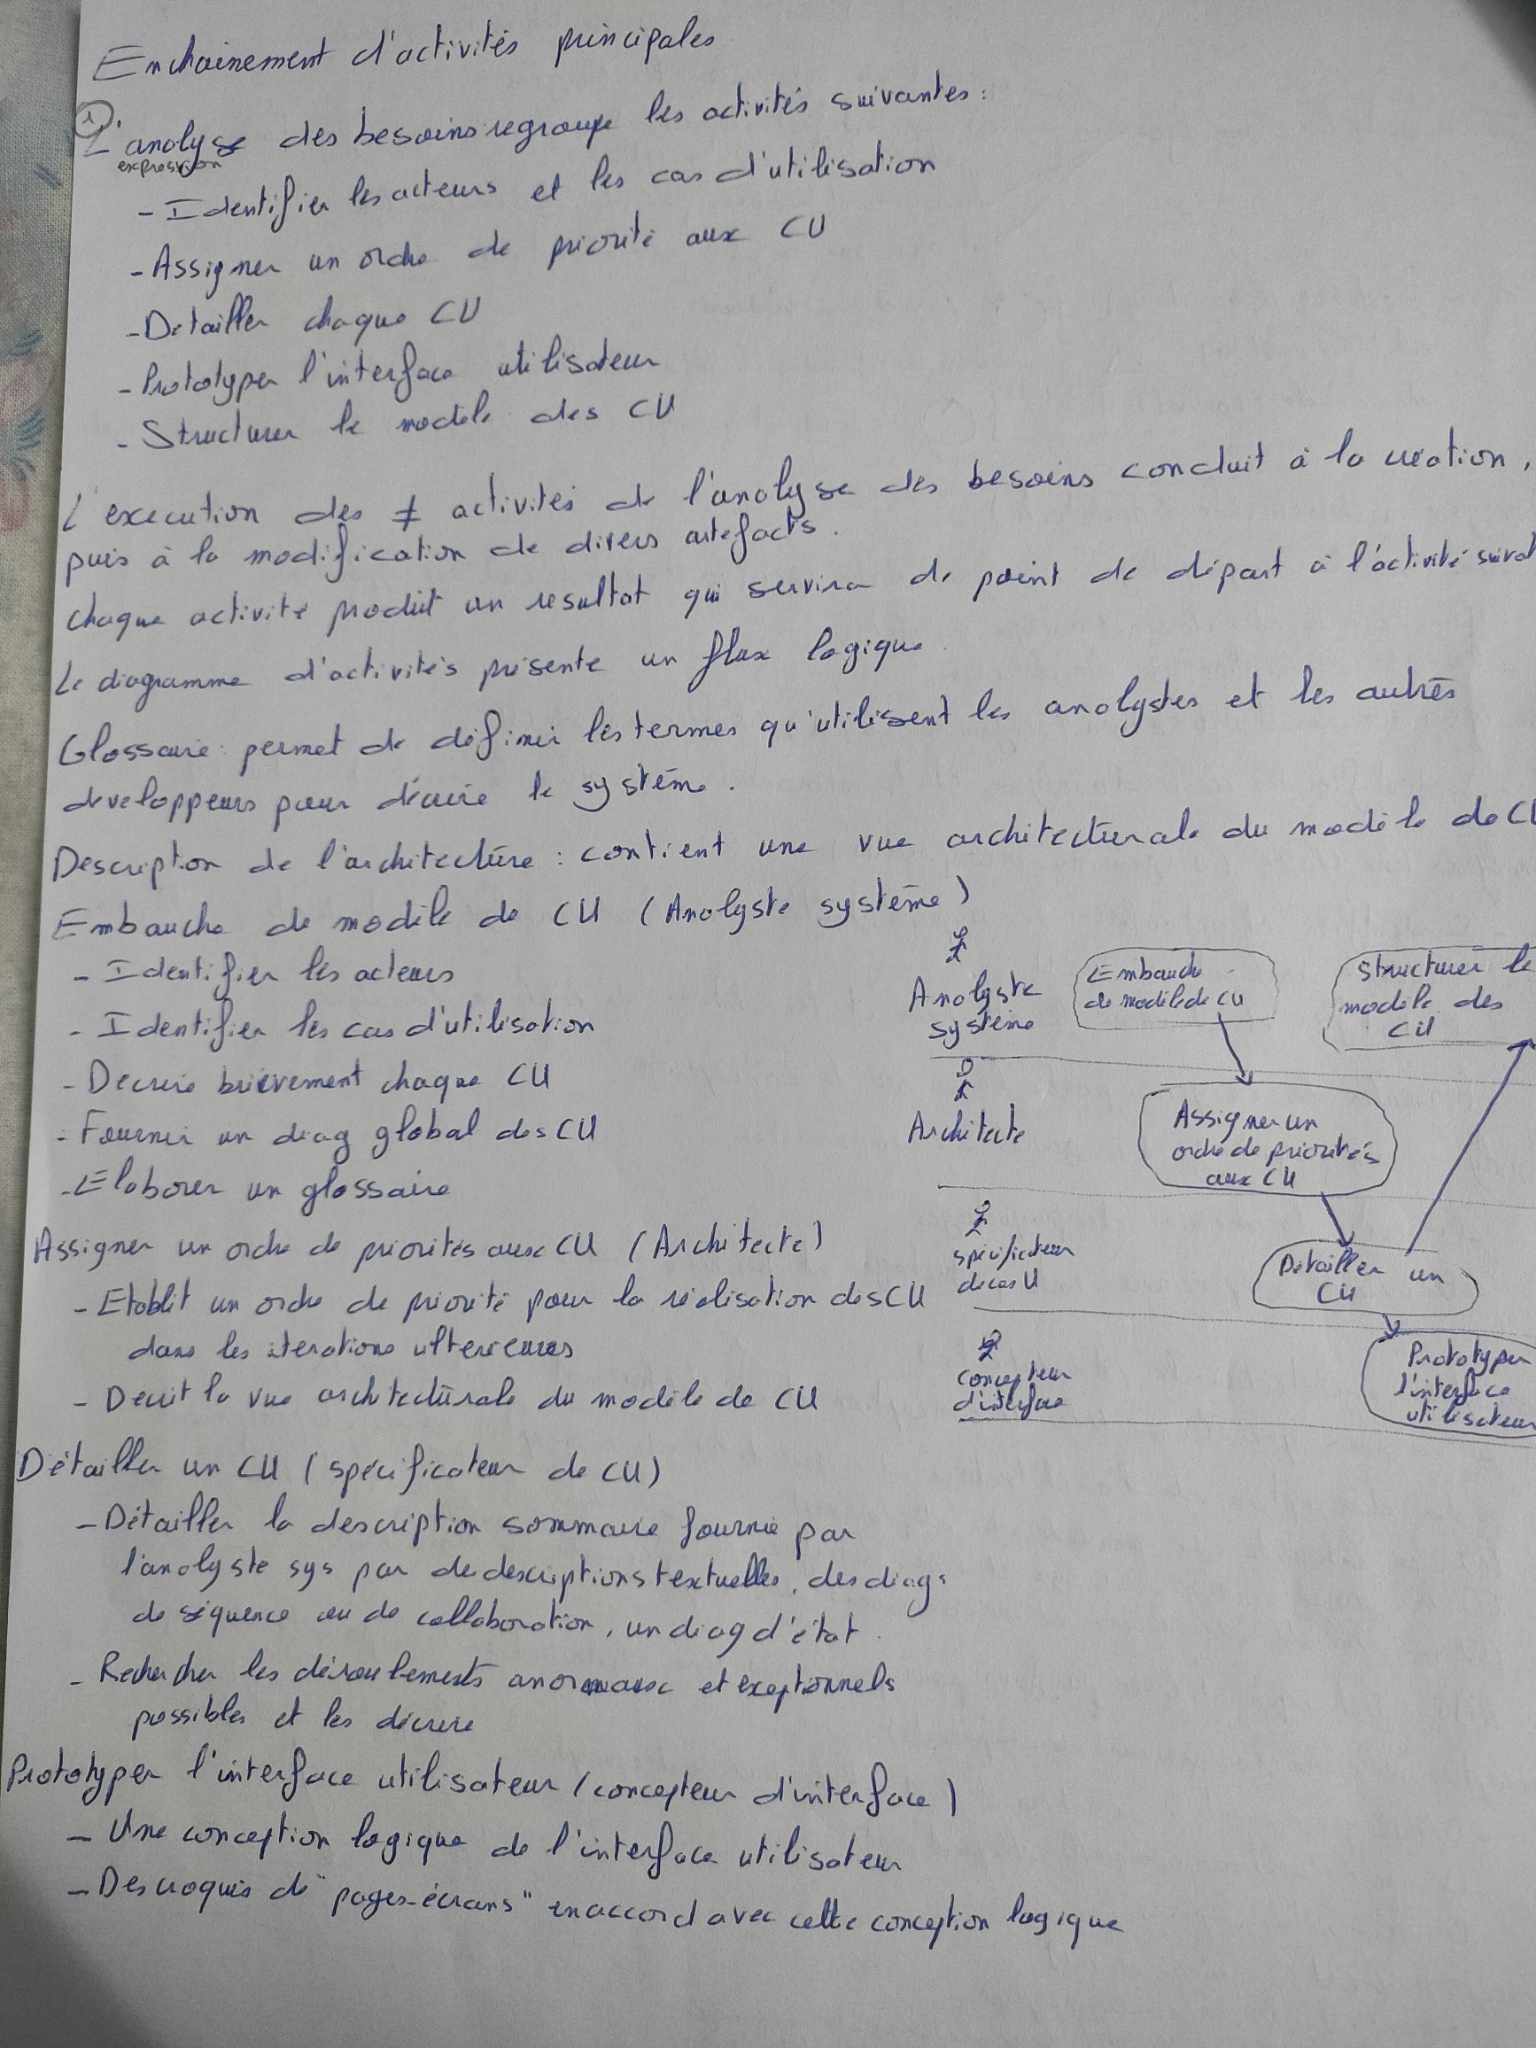 Enchainement d'activités principales
①
L'analyse des besoins regroupe les activités suivantes :
expression
- Identifier les acteurs et les cas d'utilisation
- Assigner un ordre de priorité aux CU
- Detailler chaque CU
- Prototyper l'interface utilisateur
- Structurer le modèle des CU
L'execution des ≠ activités de l'analyse des besoins conduit à la création,
puis à la modification de divers artefacts.
chaque activité produit un resultat qui servira de point de départ à l'activité suivat
Le diagramme d'activités présente un flux logique
Glossaire : permet de définir les termes qu'utilisent les analystes et les autres
developpeurs pour décrire le système.
Description de l'architecture : contient une vue architecturale du modèle de CU
Embauche de modèle de CU (Analyste système)
- Identifier les acteurs
- Identifier les cas d'utilisation
- Decrire brièvement chaque CU
- Fournir un diag global des CU
- Elaborer un glossaire
Assigner un ordre de priorités aux CU (Architecte)
- Etablit un ordre de priorité pour la réalisation des CU
dans les iterations ulterieures
- Decrit la vue architecturale du modèle de CU
Détailler un CU (spécificateur de CU)
- Détailler la description sommaire fournie par
l'analyste sys par de descriptions textuelles, des diag
de séquence ou de collaboration, un diag d'état.
- Rechercher les déroulements anormaux et exeptionnels
possibles et les décrire
Prototyper l'interface utilisateur (concepteur d'interface)
- Une conception logique de l'interface utilisateur
- Des croquis de "pages-écrans" en accord avec cette conception logique
Analyste
système
Embauche
de modèle de CU
Structurer le
modèle des
CU
Architecte
Assigner un
ordre de priorités
aux CU
spécificateur
de cas U
Détailler un
CU
concepteur
d'interface
Prototyper
l'interface
utilisateur